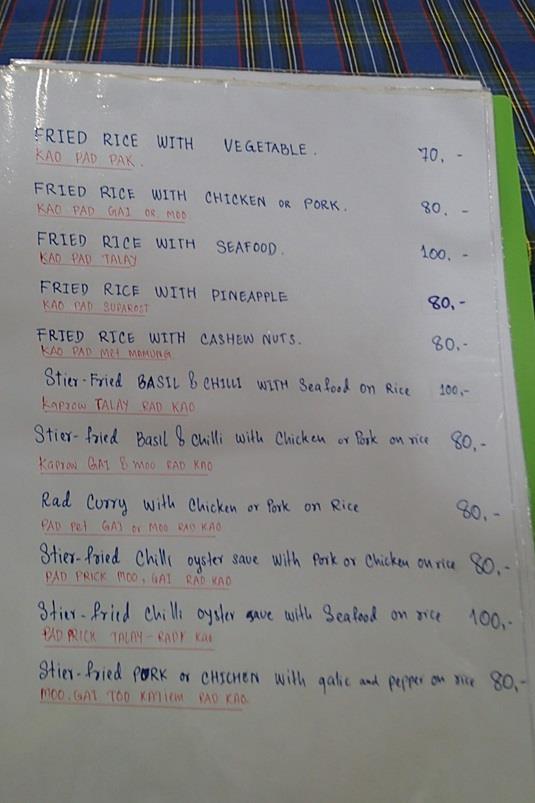 FRIED RICE WITH VEGETABLE. 70.-
KAO PAD PAK.
FRIED RICE WITH CHICKEN OR PORK. 80.-
KAO PAD GAI OR MOO
FRIED RICE WITH SEAFOOD. 100.-
KAO PAD TALAY
FRIED RICE WITH PINEAPPLE 80.-
KAO PAD SUPAROST
FRIED RICE WITH CASHEW NUTS. 80.-
KAO PAD MET MAMUNG
Stier-Fried BASIL & CHILLI WITH Seafood on Rice 100,-
Kaprow TALAY RAD KAO
Stier-fried Basil & chilli with Chicken or Pork on rice 80,-
Kaprow GAI & MOO RAD KAO
Rad Curry with Chicken or Pork on Rice 80.-
PAD Pet GAI or MOO RAD KAO
Stier-fried Chilli oyster save with Pork or Chicken on rice 80.-
PAD PRICK MOO, GAI RAD KAO
Stier-fried Chilli oyster save with Seafood on rice 100,-
PAD PRICK TALAY-RAD KAO
Stier-fried PORK or CHICHEN with galic and pepper on rice 80,-
MOO.GAI TOD KATIEM RAD KAO.